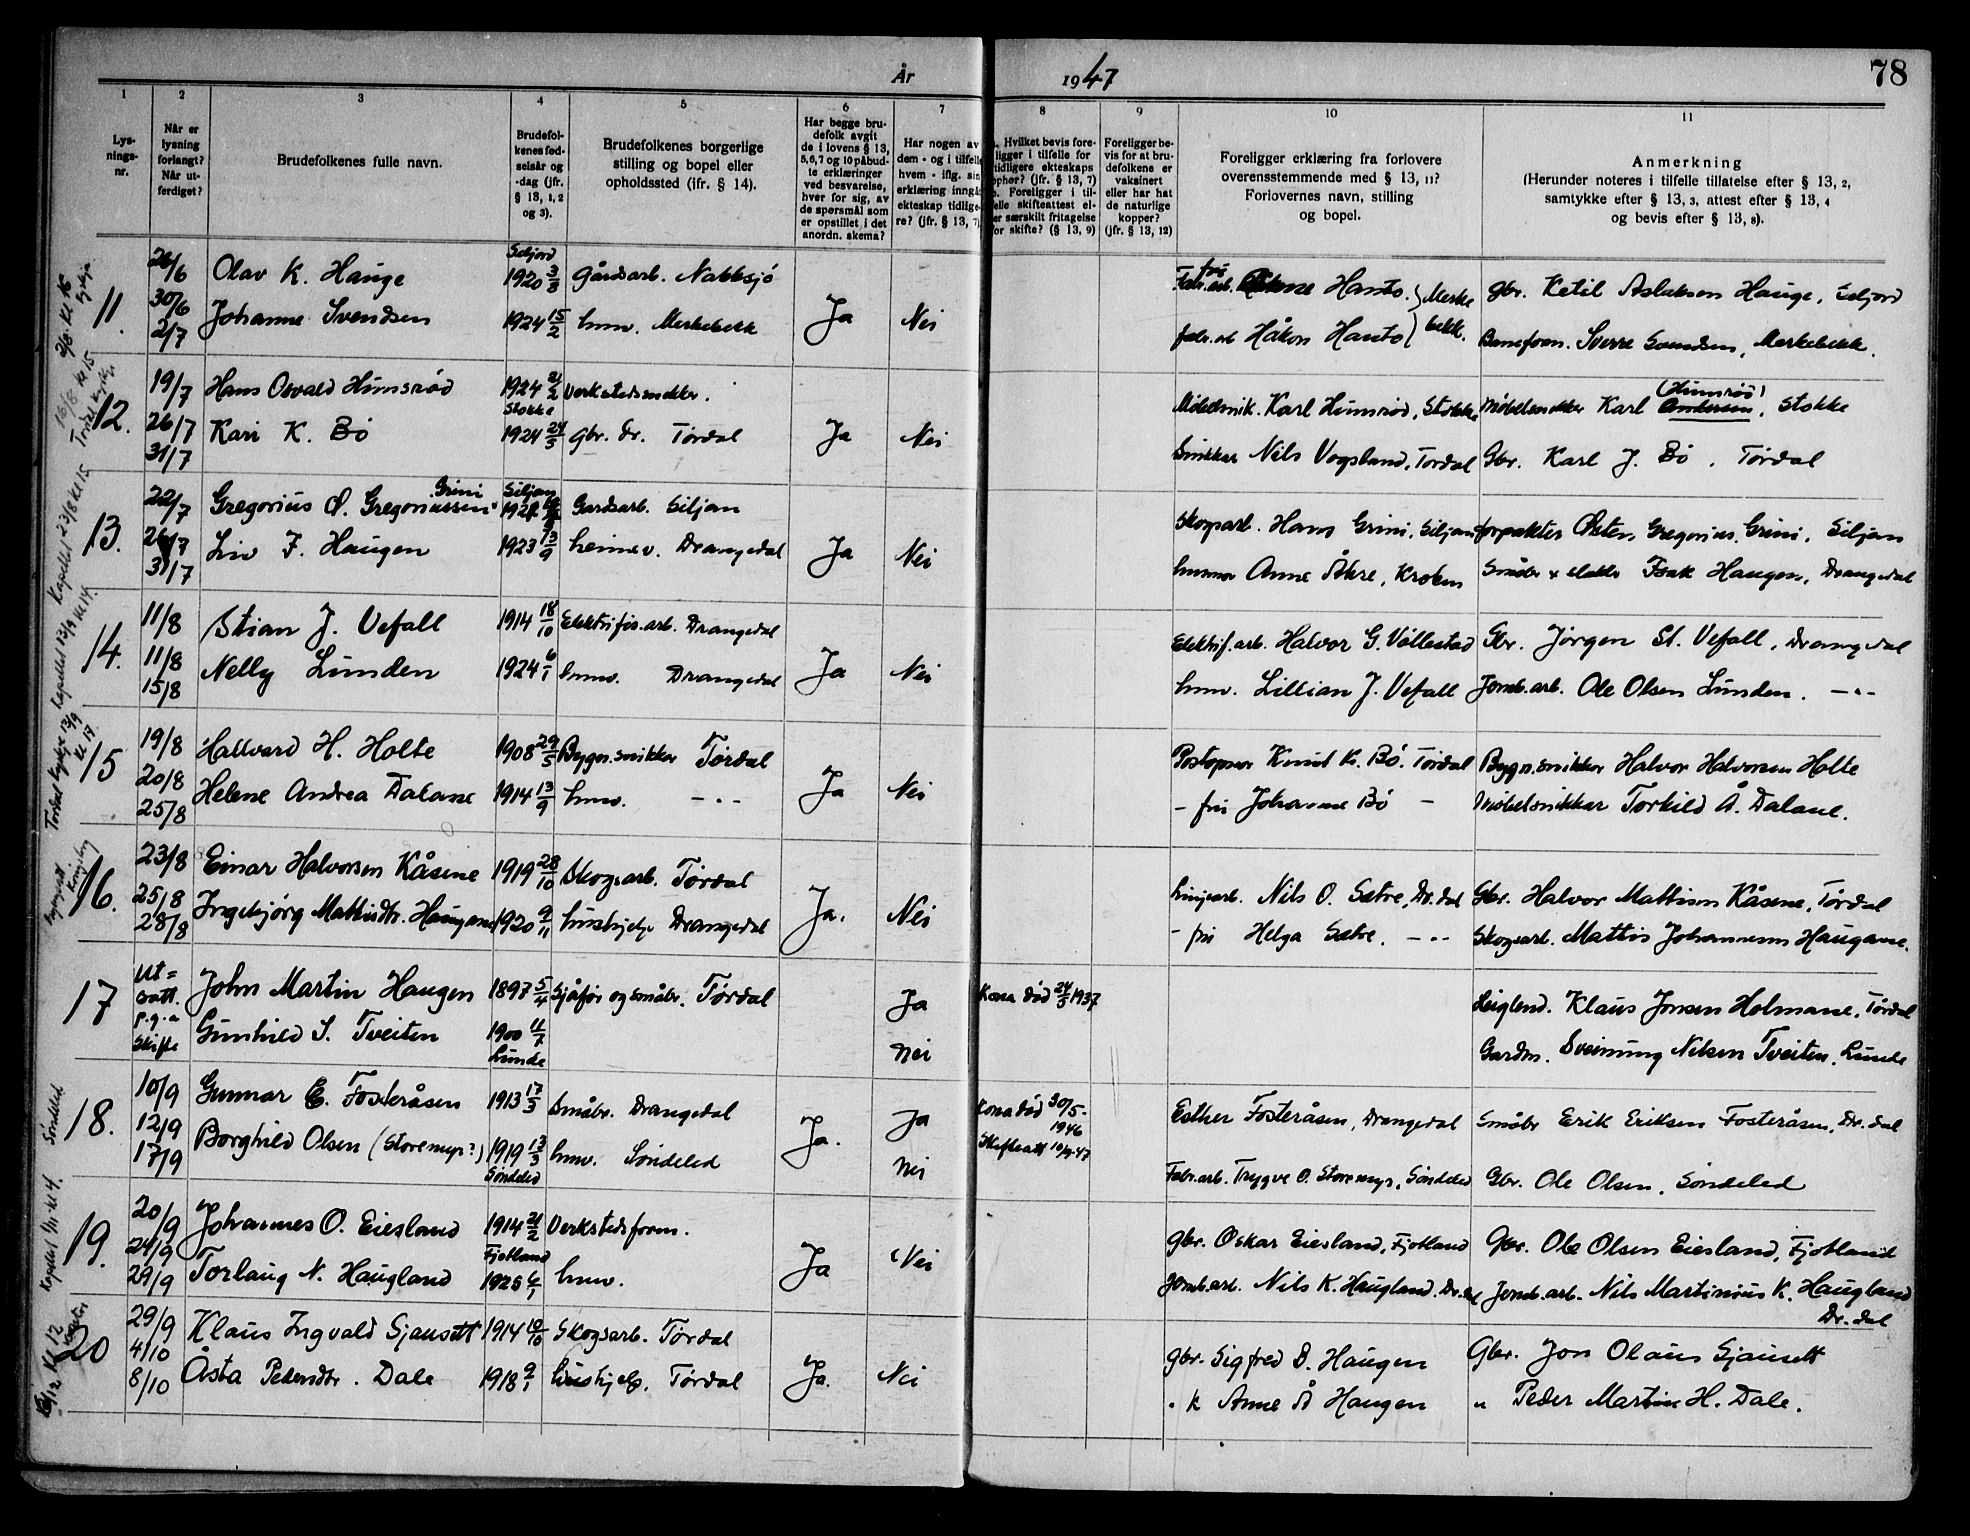 År 1947
78
1 2 3 4 5 6 7 8 9 10 11
Lys-
nings-
nr.
Når er
lysning
forlangt?
Når ut-
ferdiget?
Brudefolkenes fulle navn.
Brudefol-
kenes fød-
selsår og
-dag (jfr.
§ 13, 1, 2
og 3).
Brudefolkenes borgerlige
stilling og bopel eller
opholdssted (ifr. § 14).
Har begge bru-
defolk avgit
de i lovens § 13,
5, 6, 7 og 10 påbud-
te erklæringer
ved besvarelse,
hver for sig, av
de spørsmål som
er opstillet i det
anordn. skema?
Har nogen av
dem - og i tilfelle
hvem - iflg. sin
erklæring inngå
ekteskap tidlige-
re? (jfr. § 13, 7)
Hvilket bevis fore-
ligger i tilfelle for
tidligere ekteskaps
ophør? (jfr. § 13, 7)
Foreligger i til-
elle skifteattest el-
er særskilt fritagelse
or skifte? (§ 13, 9)
Foreligger be-
vis for at bru-
defolkene er
vaksinert
eller har hat
de naturlige
kopper?
(jfr. § 13, 12)
Foreligger erklæring fra forlovere
overensstemmende med § 13, 11?
Forlovernes navn, stilling
og bopel.
Anmerkning
(Herunder noteres i tilfelle tillatelse efter § 13, 2,
samtykke efter § 13, 3, attest efter § 13, 4
og bevis efter § 13, 8).
11. 26/6 Olav K. Hauge Seljord 1920 3/8 Gårdsarb. Nakksjø Hanto. Merke gbr. Ketil Aslaksen Hauge, Seljord
30/6 2/7 Johanne Svendsen 1924 15/2 hmv. Merkebekk Ja Nei fabr.arb Håkon Hanto bekk. Baneform. Sverre Svendsen, Merkebekk.
12. 19/7 Hans Osvald Humsrød 1924 2/2 Stokke Verkstedsnekker. Møbelsnik. Karl Humsrød, Stokke Møbelsnekker Karl Andersen (Humsrød), Stokke
26/7 31/7 Kari K. Bø 1924 24/5 gbr. dr. Tørdal Ja Nei Snikkar Nils Vogsland, Tørdal Gbr. Karl J. Bø. Tørdal
13. 22/7 Gregorius O. Gregoriussen Grini Siljan Gardsarb. Siljan Skogsarb. Hans Grini, Siljan forpakter Østen Gregorius Grini, Siljan
26/7 31/7 Liv F. Haugen 1923 13/9 heimev. Drangedal Ja Nei husmor Anne Åkre, Kroken Småbr Isak Haugen, Drangedal
14. 11/8 Stian J. Vefall 1914 18/10 Elektrifis.arb. Drangedal Elektrif.arb. Halvor G. Vållestad Gbr. Jørgen St. Vefall, Drangedal
11/8 15/8 Nelly Lunden 1924 6/1 hmv. Drangedal Ja Nei hmv. Lillian J. Vefall Jernb.arb. Ole Olsen Lunden. —"—
15 19/8 Hallvard H. Holte 1908 29/5 Bygn.snikkar Tørdal Postopnar Knut K. Bø. Tørdal Bygn.snikkar Halvor Halvorsen Holte
20/8 25/8 Helene Andrea Dalane 1914 13/9 hmv. —"— Ja Nei - fru Johanne Bø — Møbelsnikkar Torkild Å. Dalane.
16. 23/8 Einar Halvorsen Kåsene 1919 28/10 Skogsarb. Tørdal Nils O. Sætre, Dr.dal Gbr. Halvor Mattisen Kåsene, Tørdal
25/8 28/8 Ingebjørg Mattisdtr. Haugane 1920 9/11 hushjelp Drangedal Ja. Nei - fru Helga Sætre. —"— Skogsarb. Mattis Johannesen Haugane.
17 Ut= satt. p.g.a skifte John Martin Haugen 1897 5/4 Sjåfør og småbr. Tørdal Ja Kona død 24/5 1937 Leiglend. Klaus Jonsen Holmane, Tørdal
Gunhild S. Tveiten 1900 11/7 Lunde nei Gardm. Sveinung Nilsen Tveiten. Lunde
18. 10/9 Gunnar E. Fosteråsen 1913 17/3 Småbr. Drangedal Ja Kona død 30/5- 1946 Esther Fosteråsen, Drangedal Småbr Erik Eriksen Fosteråsen, Dr.dal
12/9 17/9 Borghild Olsen (Storemyr?) 1919 13/3 Søndeled hmv. Søndeled Ja. nei Skifteatt 10/9-47 Fabr.arb. Trygve O. Storemyr, Søndeled Gbr. Ole Olsen, Søndeled
19. 20/9 Johannes O. Eiesland 1914 21/2 Fjotland Verkstedsform. gbr. Oskar Eiesland, Fjotland Gbr. Ole Olsen Eiesland, Fjotland
24/9 29/9 Torlaug N. Haugland hmv. Ja Nei Jernb.arb. Nils K. Haugland. Dr.dal Jernb.arb. Nils Martinius K. Haugland Dr.dal
20 29/9 Klaus Ingvald Sjausett 1914 10/10 Skogsarb. Tørdal gbr. Sigfred D. Haugen Gbr. Jon Olaus Sjausett
4/10 8/10 Åsta Pedersdtr. Dale 1918 9/1 hushjelp, Tørdal Ja. Nei " k Anne Å Haugen " Peder Martin H. Dale.
2/8 kl 15
16/8 kl 15 Tørdal kyrkje
Kapellet 23/8 kl 15
Kapellet 13/9 kl 14.
Tørdal kyrkje 13/9 kl 17
Søndeled
Kapellet 1/11 kl 4.